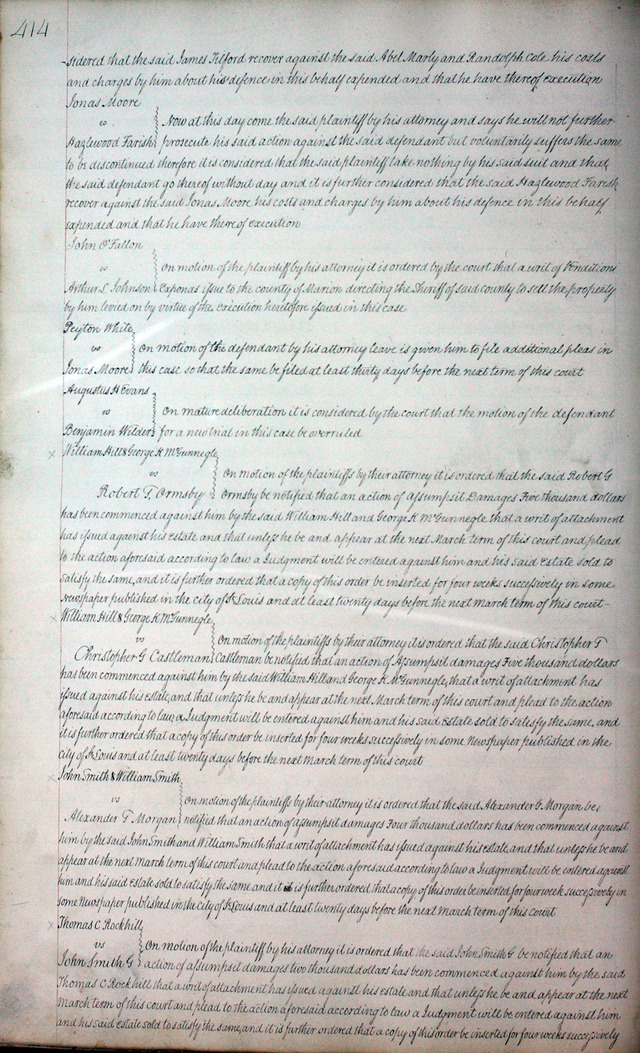 414
sidered that the said James Tilford recover against the said Abel Marly and Randolph Cole his costs
and charges by him about his defence in this behalf expended and that he have thereof execution
Jonas Moore
vs Now at this day come the said plaintiff by his attorney and says he will not further
Hazlewood Farish prosecute his said action against the said defendant but voluntarily suffers the same
to be discontinued therefore it is considered that the said plaintiff take nothing by his said suit and that
the said defendant go thereof without day and it is further considered that the said Hazlewood Farish
recover against the said Jonas Moore his costs and charges by him about his defence in this behalf
expended and that he have thereof execution
John O'Fallon
vs On motion of the plaintiff by his attorney it is ordered by the court that a writ of Venditioni
Arthur L Johnson Exponas issue to the county of Marion directing the Sheriff of said county to sell the property
by him levied on by virtue of the execution heretofore issued in this case
Peyton White
vs On motion of the defendant by his attorney leave is given him to file additional pleas in
Jonas Moore this case so that the same be filed at least thirty days before the next term of this court
Augustus H Evans
vs On mature deliberation it is considered by the court that the motion of the defendant
Benjamin Wilder for a new trial in this case be overruled
x William Hill & George K McGunnegle
vs On motion of the plaintiffs by their attorney it is ordered that the said Robert G
Robert T. Ormsby Ormsby be notified that an action of assumpsit Damages Five thousand dollars
has been commenced against him by the said William Hill and George K McGunnegle that a writ of attachment
has issued against his estate and that unless he be and appear at the next March term of this court and plead
to the action aforesaid according to law a Judgment will be entered against him and his said Estate sold to
satisfy the same, and it is further ordered that a copy of this order be inserted for four weeks successively in some
Newspaper published in the city of St Louis and at least twenty days before the next March term of this court-
x William Hill & George K McGunnegle
vs On motion of the plaintiffs by their attorney it is ordered that the said Christopher T
Christopher G Castleman Castleman be notified that an action of Assumpsit damages Five thousand dollars
has been commenced against him by the said William Hill and George K. McGunnegle, that a writ of attachment has
issued against his estate, and that unless he be and appear at the next March term of this court and plead to the action
aforesaid according to law a Judgment will be entered against him and his said Estate sold to satisfy the same, and
it is further ordered that a copy of this order be inserted for four weeks successively in some Newspaper published in the
city of St Louis and at least twenty days before the next March term of this court
x John Smith & William Smith
vs On motion of the plaintiffs by their attorney it is ordered that the said Alexander G. Morgan be
Alexander T Morgan notified that an action of assumpsit damages Four thousand dollars has been commenced against
him by the said John Smith and William Smith that a writ of attachment has issued against his estate, and that unless he be and
appear at the next March term of this court and plead to the action aforesaid according to law a Judgment will be entered against
him and his said estate sold to satisfy the same and it is further ordered that a copy of this order be inserted for four week successively in
some Newspaper published in the city of St Louis and at least twenty days before the next March term of this court
x Thomas C Rockhill
vs On motion of the plaintiff by his attorney it is ordered that the said John Smith G be notified that an
John Smith G action of assumpsit damages two thousand dollars has been commenced against him by the said
Thomas C Rockhill that a writ of attachment has issued against his estate and that unless he be and appear at the next
March term of this court and plead to the action aforesaid according to law a Judgment will be entered against him
and his said estate sold to satisfy the same, and it is further ordered that a copy of this order be inserted for four weeks successively